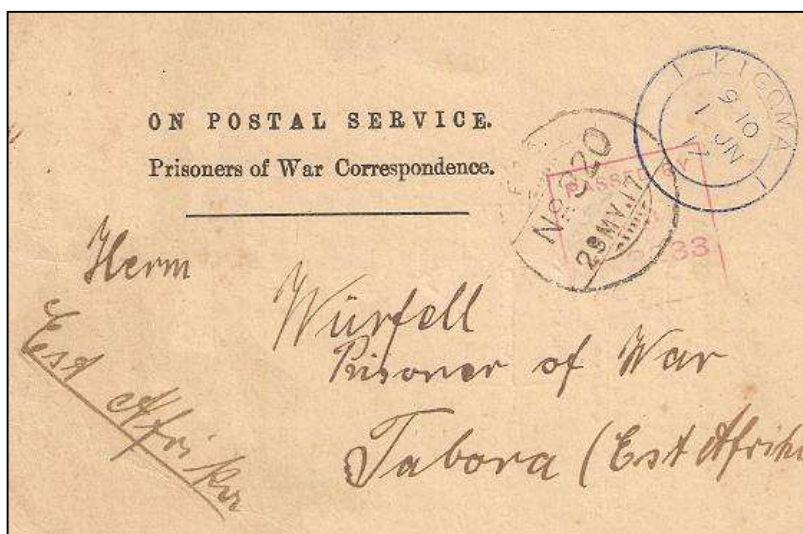 ON POSTAL SERVICE.
Prisoners of War Correspondence.
KIGOMA
10
1 JN
17
No 320
29 MY. 17
PASSED BY
33
Herrn
Würfell
Prisoner of War
Tabora (Est Afrika
Est Afrika